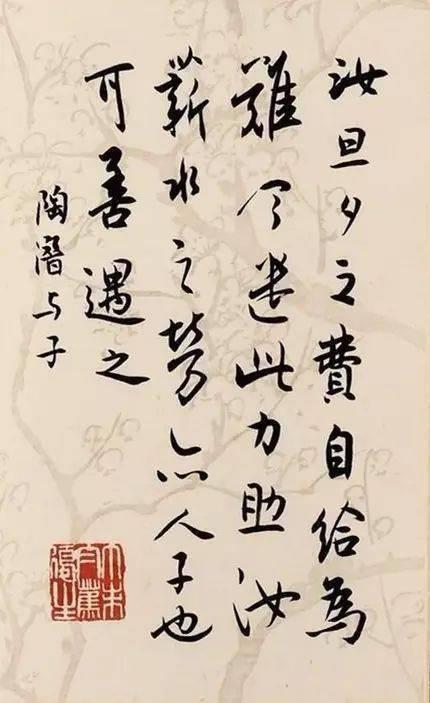 汝旦夕之費自給為
難今遣此力助汝
薪水之勞亦人子也
可善遇之
陶潛与子